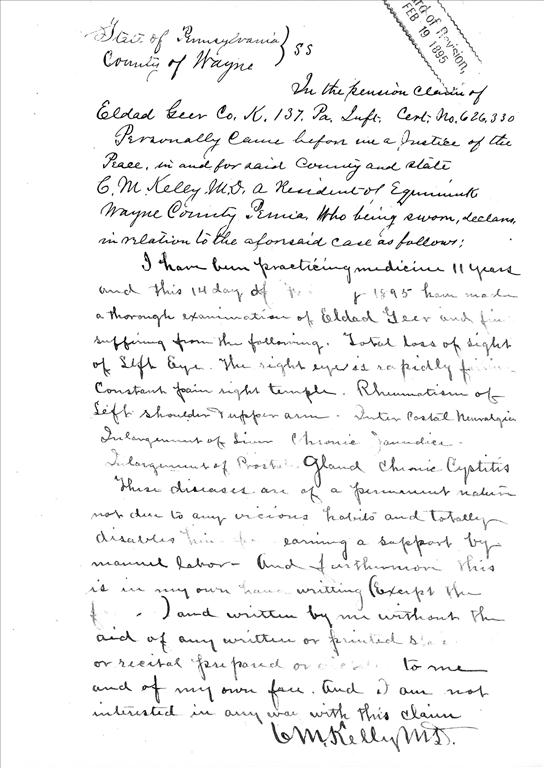 State of Pennsylvania } SS
County of Wayne
rd of Revision,
FEB 19 1895
In the pension claim of
Eldad Geer Co. K. 137. Pa. Inft. Cert. No. 626,330
Personally Came before me a Justice of the
Peace, in and for said County and state
C. M. Kelly M.D. a Resident of Equinunk
Wayne County Penna. Who being sworn, declares
in relation to the aforesaid case as follows;
I have been practicing medicine 11 years
and this 14 day of 1895 have made
a thorough examination of Eldad Geer and find
suffering from the following. Total loss of sight
of Left Eye. The right eye is rapidly
Constant pain right temple. Rheumatism of
Left shoulder & upper arm. Inter Costal Neuralgia
Inlargement of Liver Chronic Jaundice.
Inlargement of Prost Gland Chronic Cystitis
These diseases are of a permanent nature
not due to any vicious habits and totally
disables him earning a support by
manuel labor - And furthermore this
is in my own hand writting (Except the
) and written by me without the
aid of any written or printed
or recital prepared or to me
and of my own free. And I am not
interested in any way with this claim
C M. Kelly M.D.